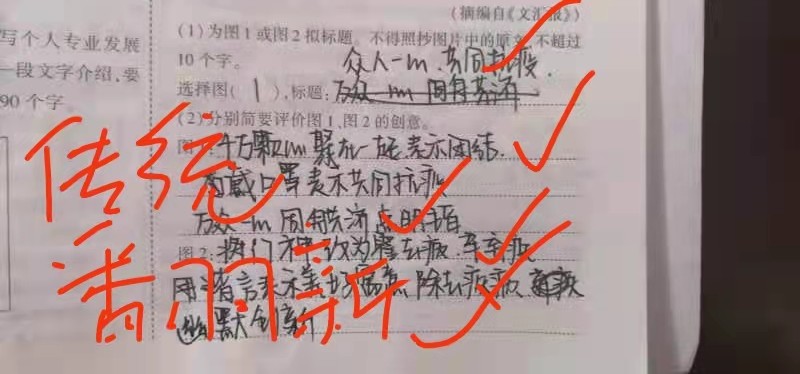 (摘编自《文汇报》)
写个人专业发展
(1)为图1或图2拟标题。不得照抄图片中的原文,不超过
一段文字介绍,要
10个字。 众人一心 共同抗疫.
90个字
选择图( 1 ),标题: 万众一心 同舟共济
(2)分别简要评价图1、图2的创意。
千万颗心聚在一起表示团结.
戴口罩表示共同抗疫
万众一心 同舟共济 点明
图2: 门神 改为 去疫.
用谐音表示美好愿 除去疫病
幽默创新
传统